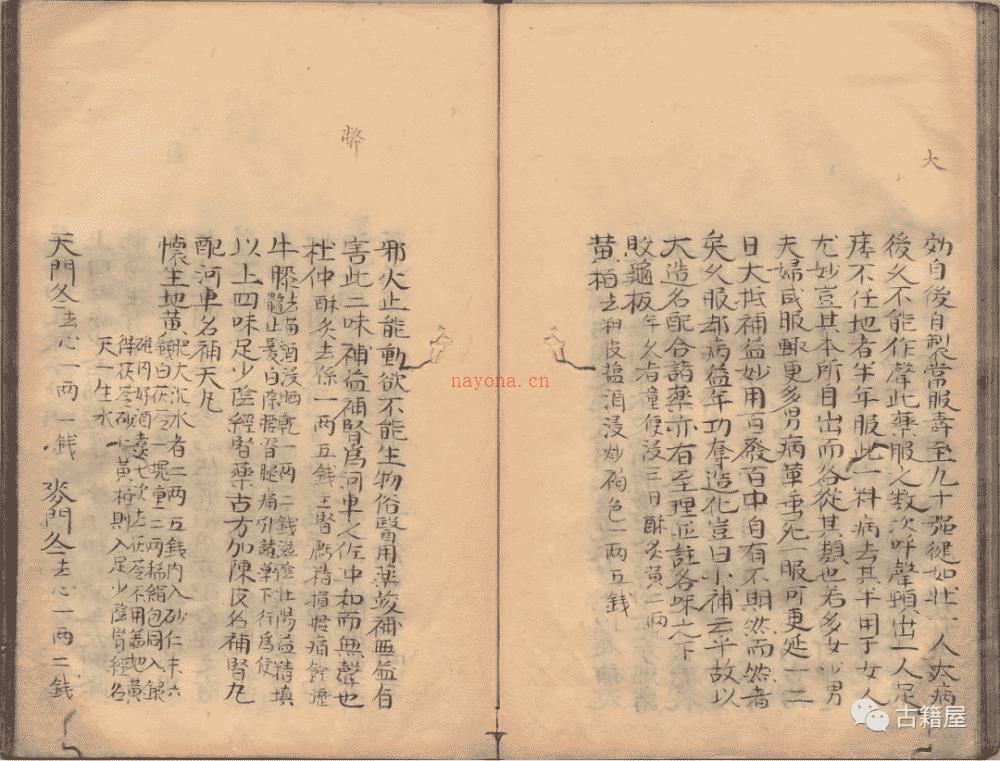 大
効自後自製常服壽至九十强健如壯一人大病
後久不能作聲此藥服人数次呼聲頓出一人足
痿不任地者半年服此一料病去其半用于女人
尤妙豈其本所自出而各從其類也若多女少男
夫婦咸服輙更多男病革垂死一服可更延一二
日大抵補益妙用百發百中自有不期然而然者
矣久服却病益年功奪造化豈曰小補云乎故以
大造名配合諸藥亦有至理並註各味之下
敗龜板年久者童便浸三日酥炙黄二两
黄柏去粗皮塩酒浸炒褐色一两五錢
弊
邪火止能動欲不能生物俗醫用藥峻補無益有
害此二味補益補腎為河車之佐中和而無弊也
杜仲酥炙去絲一两五錢主腎虧精損腰痛
牛膝去苗酒浸晒乾一两二錢滋陰壮陽益精填
髓止髮白除腰脊腿痛引諸藥下行為使
以上四味足少陰經腎藥古方加陳皮名補腎丸
配河車名補天丸
懷生地黄肥大沉水者二两五錢内入砂仁末六
錢白茯苓一塊重二两稀絹包同入銀
礶内好酒煮七次去茯苓不用盖地黄
得茯苓砂仁黄柏則入足少陰腎經名
天一生水
天門冬去心一两一錢 麥門冬去心一两二錢
nayona.cn
古籍屋